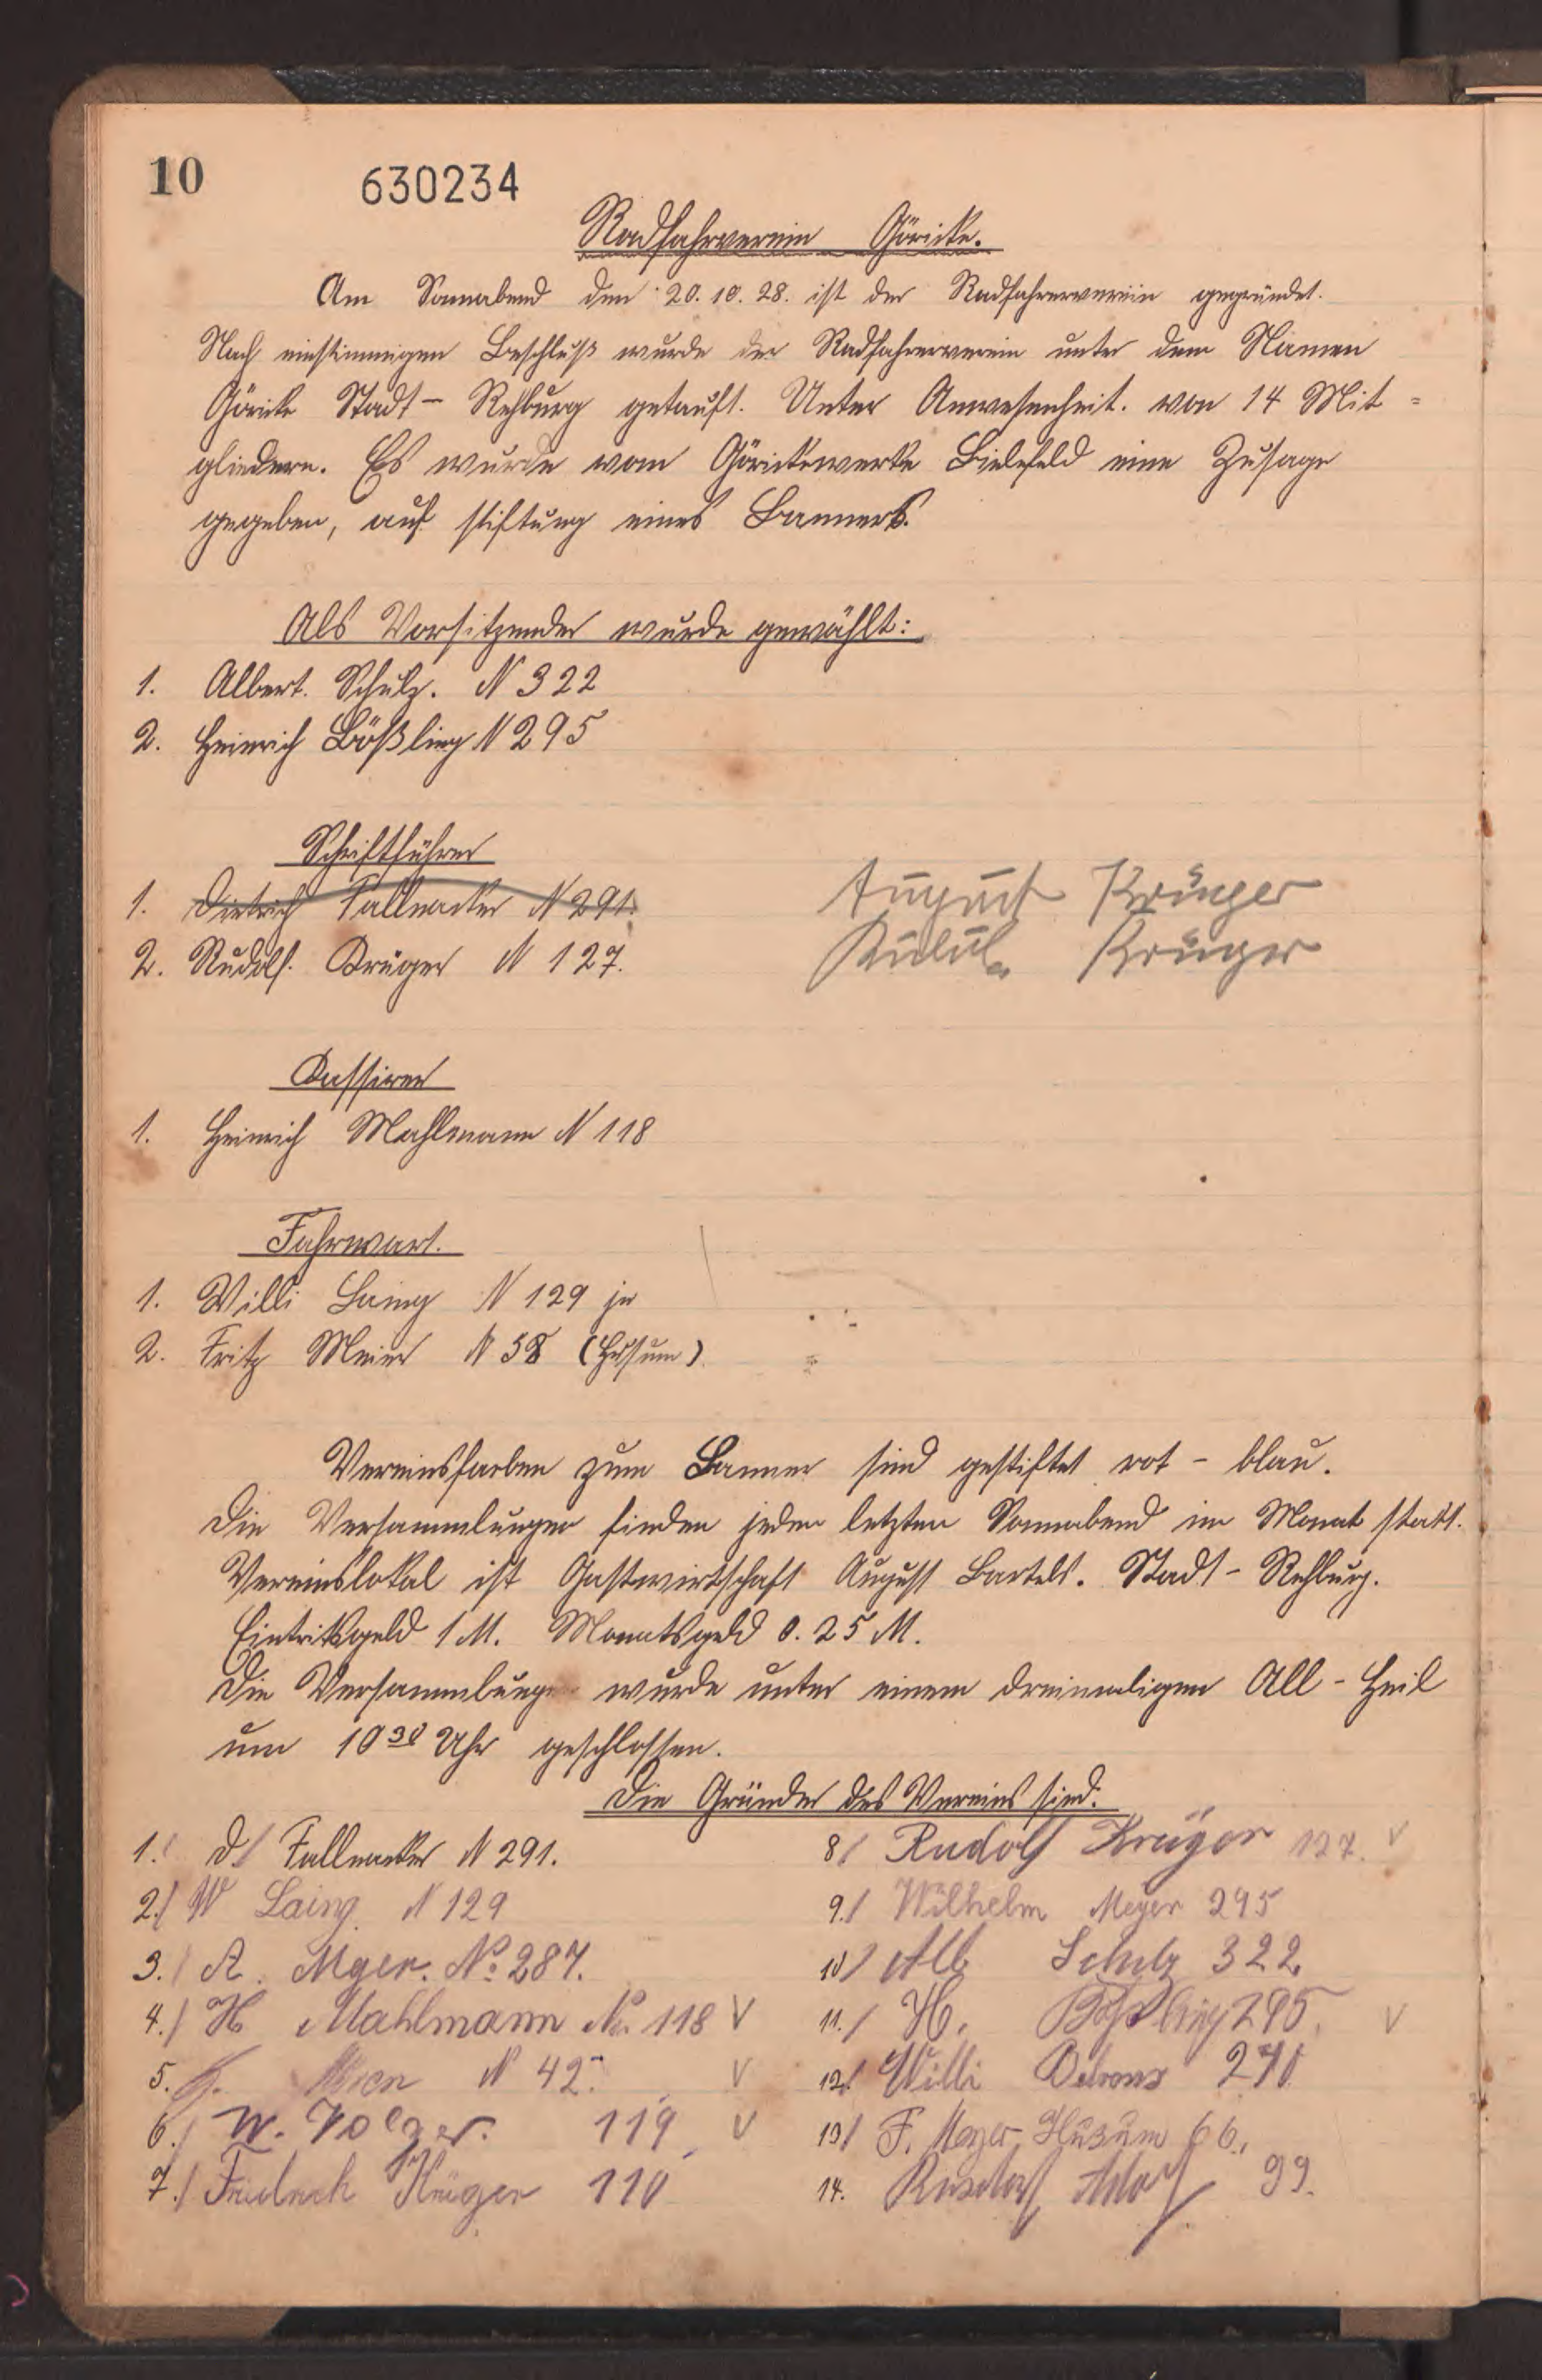 10
630234
Radfahrverein Göricke.
Am Sonnabend den 20.10.28. ist der Radfahrerverein gegründet.
Nach einstimmigen Beschluß wurde der Radfahrerverein unter dem Namen
Göricke Stadt - Rehburg getauft. Unter Anwesenheit. von 14 Mit =
gliedern. Es wurde vom Görickewerke Bielefeld eine Zusage
gegeben, auf stiftung eines Banners.
Als Vorsitzender wurde gewählt:
1. Albert. Schulz. N 322
2. Heinrich Bößling N 295
Schriftführer
1. Dietrich Fallnacker N 291.
August Krüger
2. Rudolf. Krüger N 127.
Krüger
Kassirer
1. Heinrich Mahlmann N 118
Fahrwart.
1. Willi Laing N 129 jr
2. Fritz Meier N 58 (Husum)
Vereinsfarben zum Banner sind gestiftet rot - blau.
Die Versammlungen finden jeden letzten Sonnabend im Monat statt.
Vereinslokal ist Gastwirtschaft August Bartels. Stadt - Rehburg.
Eintrittsgeld 1 M. Monatsgeld 0.25 M.
Die Versammlung wurde unter einem dreimaligen All - Heil
um 10 30 Uhr geschlossen.
Die Gründer des Vereins sind.
1. D. Fallnacker N 291.
2./ W Laing. N 129
3./ A. Myer. No. 287.
4./ H Mahlmann No. 118 V
5. N 42. V
6./ W. Volger. 119 V
7./ Friedrich Krüger 110
8/ Rudolf Krüger 127. V
9./ Wilhelm Meyer 295
10/ Alb Schulz 322.
11./ H. Bößling 295. V
12/ Willi 270
13/ F. Meyer Husum 66.
14. 99.